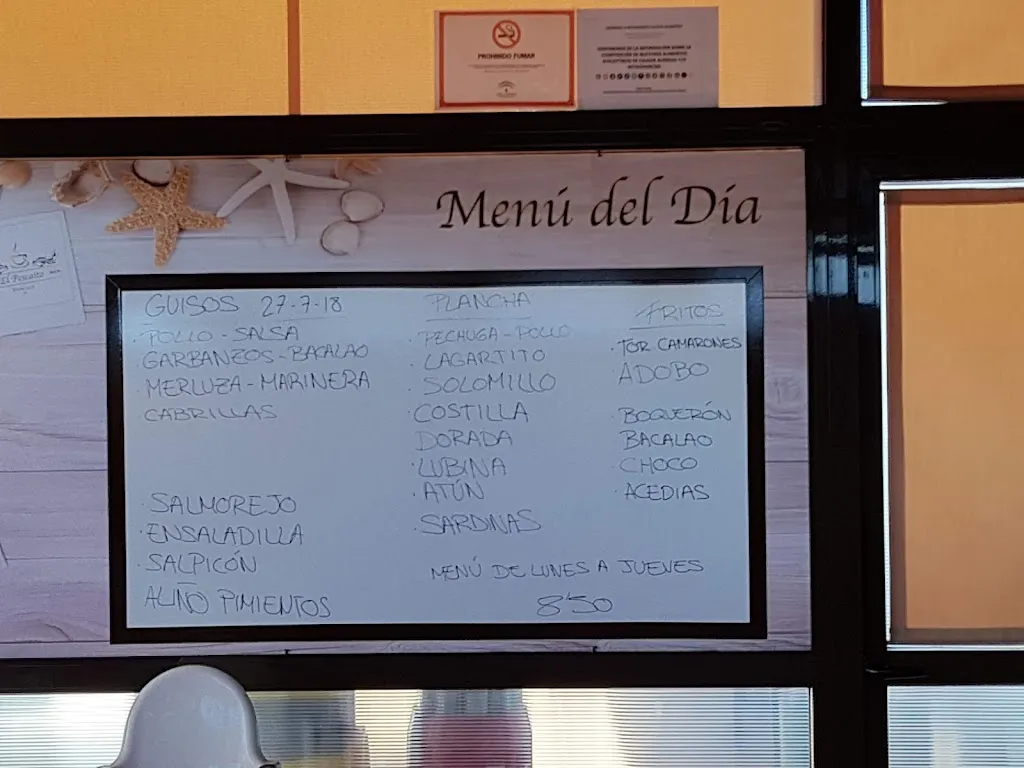 PROHIBIDO FUMAR
Menú del Día
El Pescaito
GUISOS 27-7-18
· POLLO - SALSA
GARBANZOS - BACALAO
· MERLUZA - MARINERA
CABRILLAS
· SALMOREJO
· ENSALADILLA
· SALPICÓN
ALIÑO PIMIENTOS
PLANCHA
· PECHUGA - POLLO
· LAGARTITO
· SOLOMILLO
· COSTILLA
DORADA
· LUBINA
· ATÚN
· SARDINAS
MENÚ DE LUNES A JUEVES
8'50
FRITOS
· TOR CAMARONES
· ADOBO
BOQUERÓN
BACALAO
CHOCO
· ACEDIAS